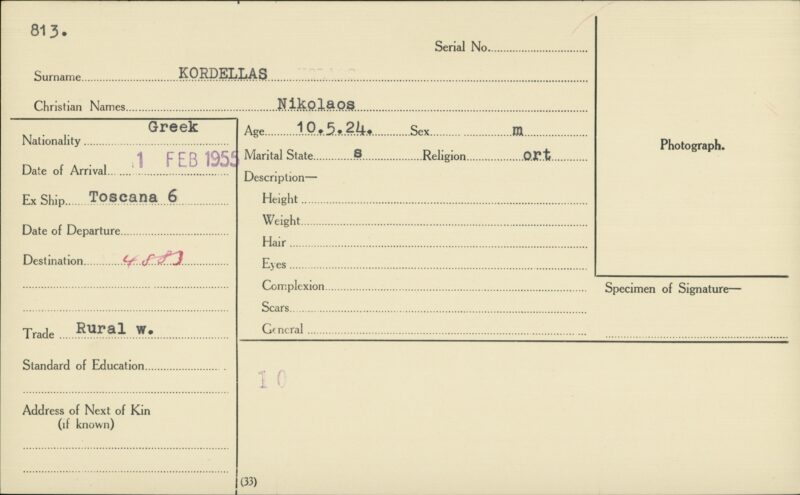 813.
Serial No.
Surname KORDELLAS
Christian Names Nikolaos
Nationality Greek
Date of Arrival 1 FEB 1955
Ex Ship Toscana 6
Date of Departure
Destination 4883
Trade Rural w.
Standard of Education
Address of Next of Kin
(if known)
Age 10.5.24. Sex m
Marital State s Religion ort
Description—
Height
Weight
Hair
Eyes
Complexion
Scars
General
10
(33)
Photograph.
Specimen of Signature—